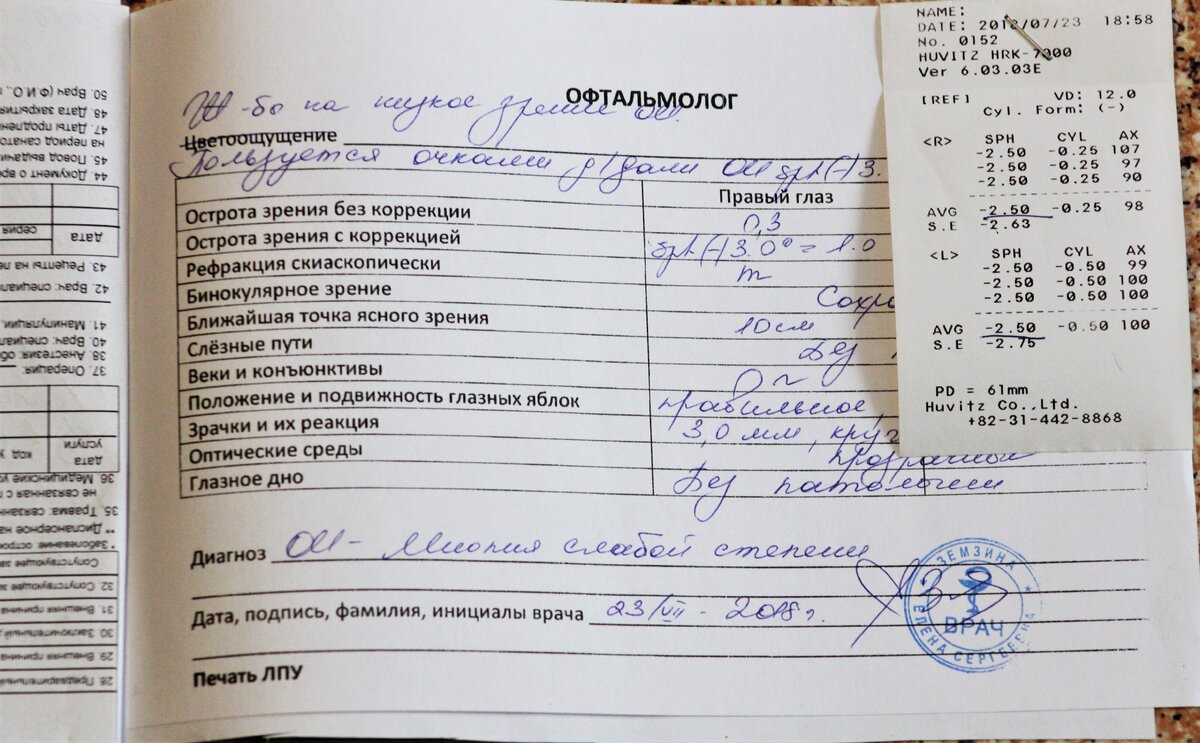 ОФТАЛЬМОЛОГ
Ж-бы на низкое зрение OU.
Цветоощущение
Пользуется очками д/дали OU sph(-)3.
Правый глаз
Острота зрения без коррекции 0,3
Острота зрения с коррекцией sph(-)3.0 = 1.0
Рефракция скиаскопически m
Бинокулярное зрение Сохра
Ближайшая точка ясного зрения 10см
Слёзные пути Без
Веки и конъюнктивы
Положение и подвижность глазных яблок правильное,
Зрачки и их реакция 3,0 мм, круг
Оптические среды прозрачные
Глазное дно Без патологии
Диагноз OU - Миопия слабой степени
Дата, подпись, фамилия, инициалы врача 23/VII - 2018г.
Печать ЛПУ
ЗЕМЗИНА
ЕЛЕНА СЕРГЕЕВНА
ВРАЧ
NAME:
DATE: 2018/07/23 18:58
No. 0152
HUVITZ HRK-7000
Ver 6.03.03E
[REF] VD: 12.0
Cyl. Form: (-)
<R> SPH CYL AX
-2.50 -0.25 107
-2.50 -0.25 97
-2.50 -0.25 90
AVG -2.50 -0.25 98
S.E -2.63
<L> SPH CYL AX
-2.50 -0.50 99
-2.50 -0.50 100
-2.50 -0.50 100
AVG -2.50 -0.50 100
S.E -2.75
PD = 61mm
Huvitz Co.,Ltd.
+82-31-442-8868
50. Врач (Ф.И.О.,
48. Дата закрытия
47. Даты продлени
на период санато
45. Повод выдачи
44. Документ о вре
дата
серия
43. Рецепты на ле
42. Врач: специал
41. Манипуляции,
40. Врач: специал
38. Анестезия: об
37. Операция:
дата
услуги
код у
36. Медицинские ус
не связанная с п
35. Травма: связанн
** Диспансерное на
* Заболевание: остро
Сопутствующее за
32 Сопутствующее зае
31 Внешняя причина
30 Заключительный
29 Внешняя причина
28 Предварительный